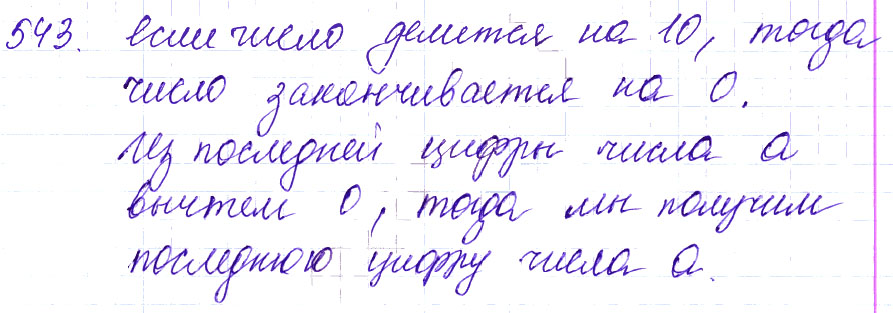 543. если число делится на 10, тогда
число заканчивается на 0.
Из последней цифры числа a
вычтем 0, тогда мы получим
последнюю цифру числа a.